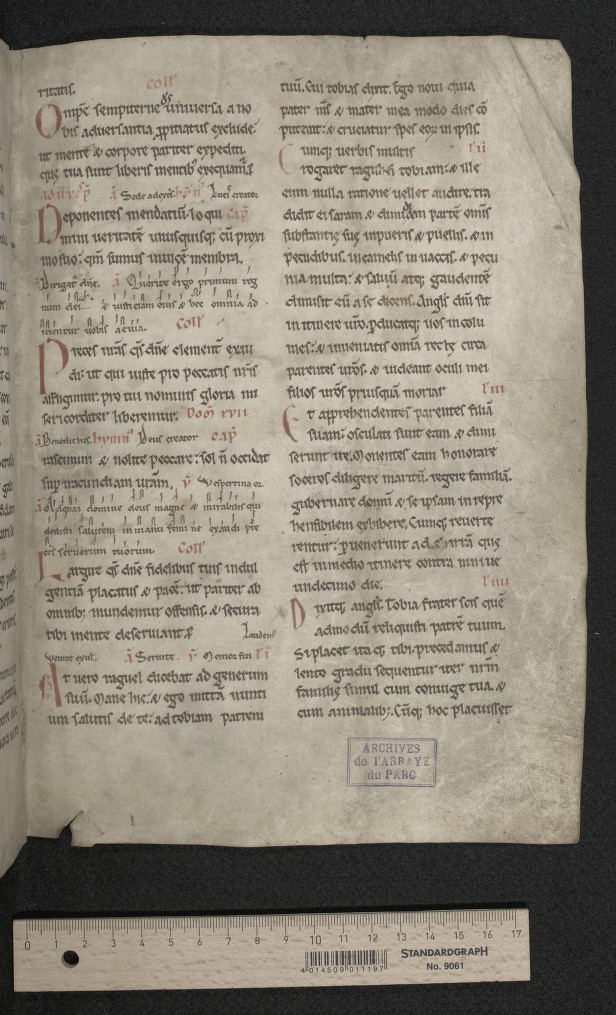 ritatis. Coll'
Omps sempiterne ds universa a no
bis adversantia ꝓpitiatus exclude.
ut mente & corpore pariter expediti.
que tua sunt liberis mentib; exequam̄.
Deponentes mendatiū. loqui cap̄
mini veritatē unusquisq; cū proxi
mo suo. qm̄ sumus invicē membra.
Dirigat' dn̄e. Querite ergo primum reg
num dei & iusticiam eius & hec omnia ad
icientur vobis aevia. Coll'
Preces nr̄as qs dn̄e clement' exau
di. ut qui iuste pro peccatis nr̄is
affligimur. pro tui nominis gloria mi
sericorditer liberemur. Dom̄ xvii
Benedictus. hymn' Deus creator cap̄
rascimini & nolite peccare. sol n̄ occidat
sup iracundiam vr̄am. v̄ Vespertina or.
Adonai domine deus magne & mirabilis qui
dedisti salutem in manu femine exaudi pre
ces servorum tuorum. Coll'
Largire qs dn̄e fidelibus tuis indul
gentiā placatus & pacē. ut pariter ab
omnib; mundemur offensis. & secura
tibi mente deserviant ꝑ
Laudem'
Venite exul. Servite. v̄ Memor fui l' i
At vero raguel dicebat ad generum
suū. Mane hic. & ego mittā nunti
um salutis de te. ad tobiam patrem
tuū. Cui tobias dixit. Ego novi quia
pater m̄s & mater mea modo dies cō
putent. & cruciatur sp̄s eoꝝ in ipsis.
Cumq; verbis multis l' ii
rogaret raguhel tobiam. & ille
eum nulla ratione vellet audire. tra
didit ei saram & dimidiam partē omīs
substantie sue in pueris & puellis. & in
pecudibus. in camelis in vaccis. & pecu
nia multa. & salvū atq; gaudentē
dimisit eū a se dicens. Angl's dn̄i sit
in itinere vr̄o. ꝑducatq; vos incolu
mes. & inveniatis omīa recte circa
parentes vr̄os. & videant oculi mei
filios vr̄os priusquā moriar l' iii
Et apprehendentes parentes filiā
suam. osculati sunt eam & dimi
serunt ire. Monentes eam honorare
soceros diligere maritū. regere familiā.
gubernare domū & se ipsam inrepre
hensibilem exhibere. Cumq; reverte
rentur. ꝑvenerunt ad charrā que
est in medio itinere contra ninive
undecimo die. l' iiii
Dixitq; angl's. Tobia frater scis quē
admodū reliquisti patrē tuum.
Si placet itaq; tibi. precedamus &
lento gradu sequentur iter nr̄m
familie simul cum coniuge tua. &
cum animalib;. Cūq; hoc placuisset
ARCHIVES
de l'ABBAYE
du PARC
0 1 2 3 4 5 6 7 8 9 10 11 12 13 14 15 16 17
4 014509 011197
STANDARDGRAPH
No. 9061